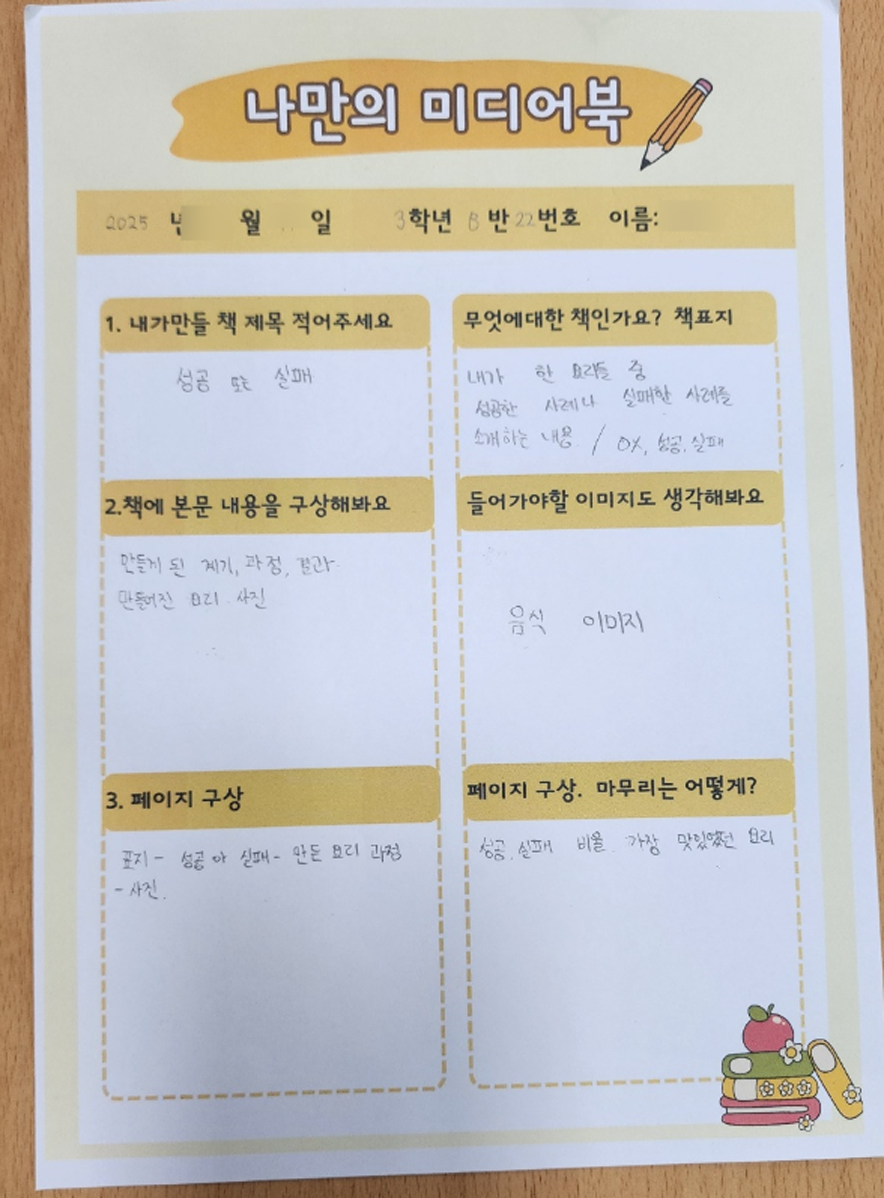 나만의 미디어북
2025 년 월 일 3학년 반 22번호 이름:
1. 내가만들 책 제목 적어주세요
성공 또는 실패
무엇에대한 책인가요? 책표지
내가 한 요리들 중
성공한 사례나 실패한 사례를
소개하는 내용 / OX, 성공, 실패
2.책에 본문 내용을 구상해봐요
만들게 된 계기, 과정, 결과
만들어진 요리 사진
들어가야할 이미지도 생각해봐요
음식 이미지
3. 페이지 구상
표지 - 성공 아 실패 - 만든 요리 과정
- 사진.
페이지 구상. 마무리는 어떻게?
성공, 실패 비율. 가장 맛있었던 요리